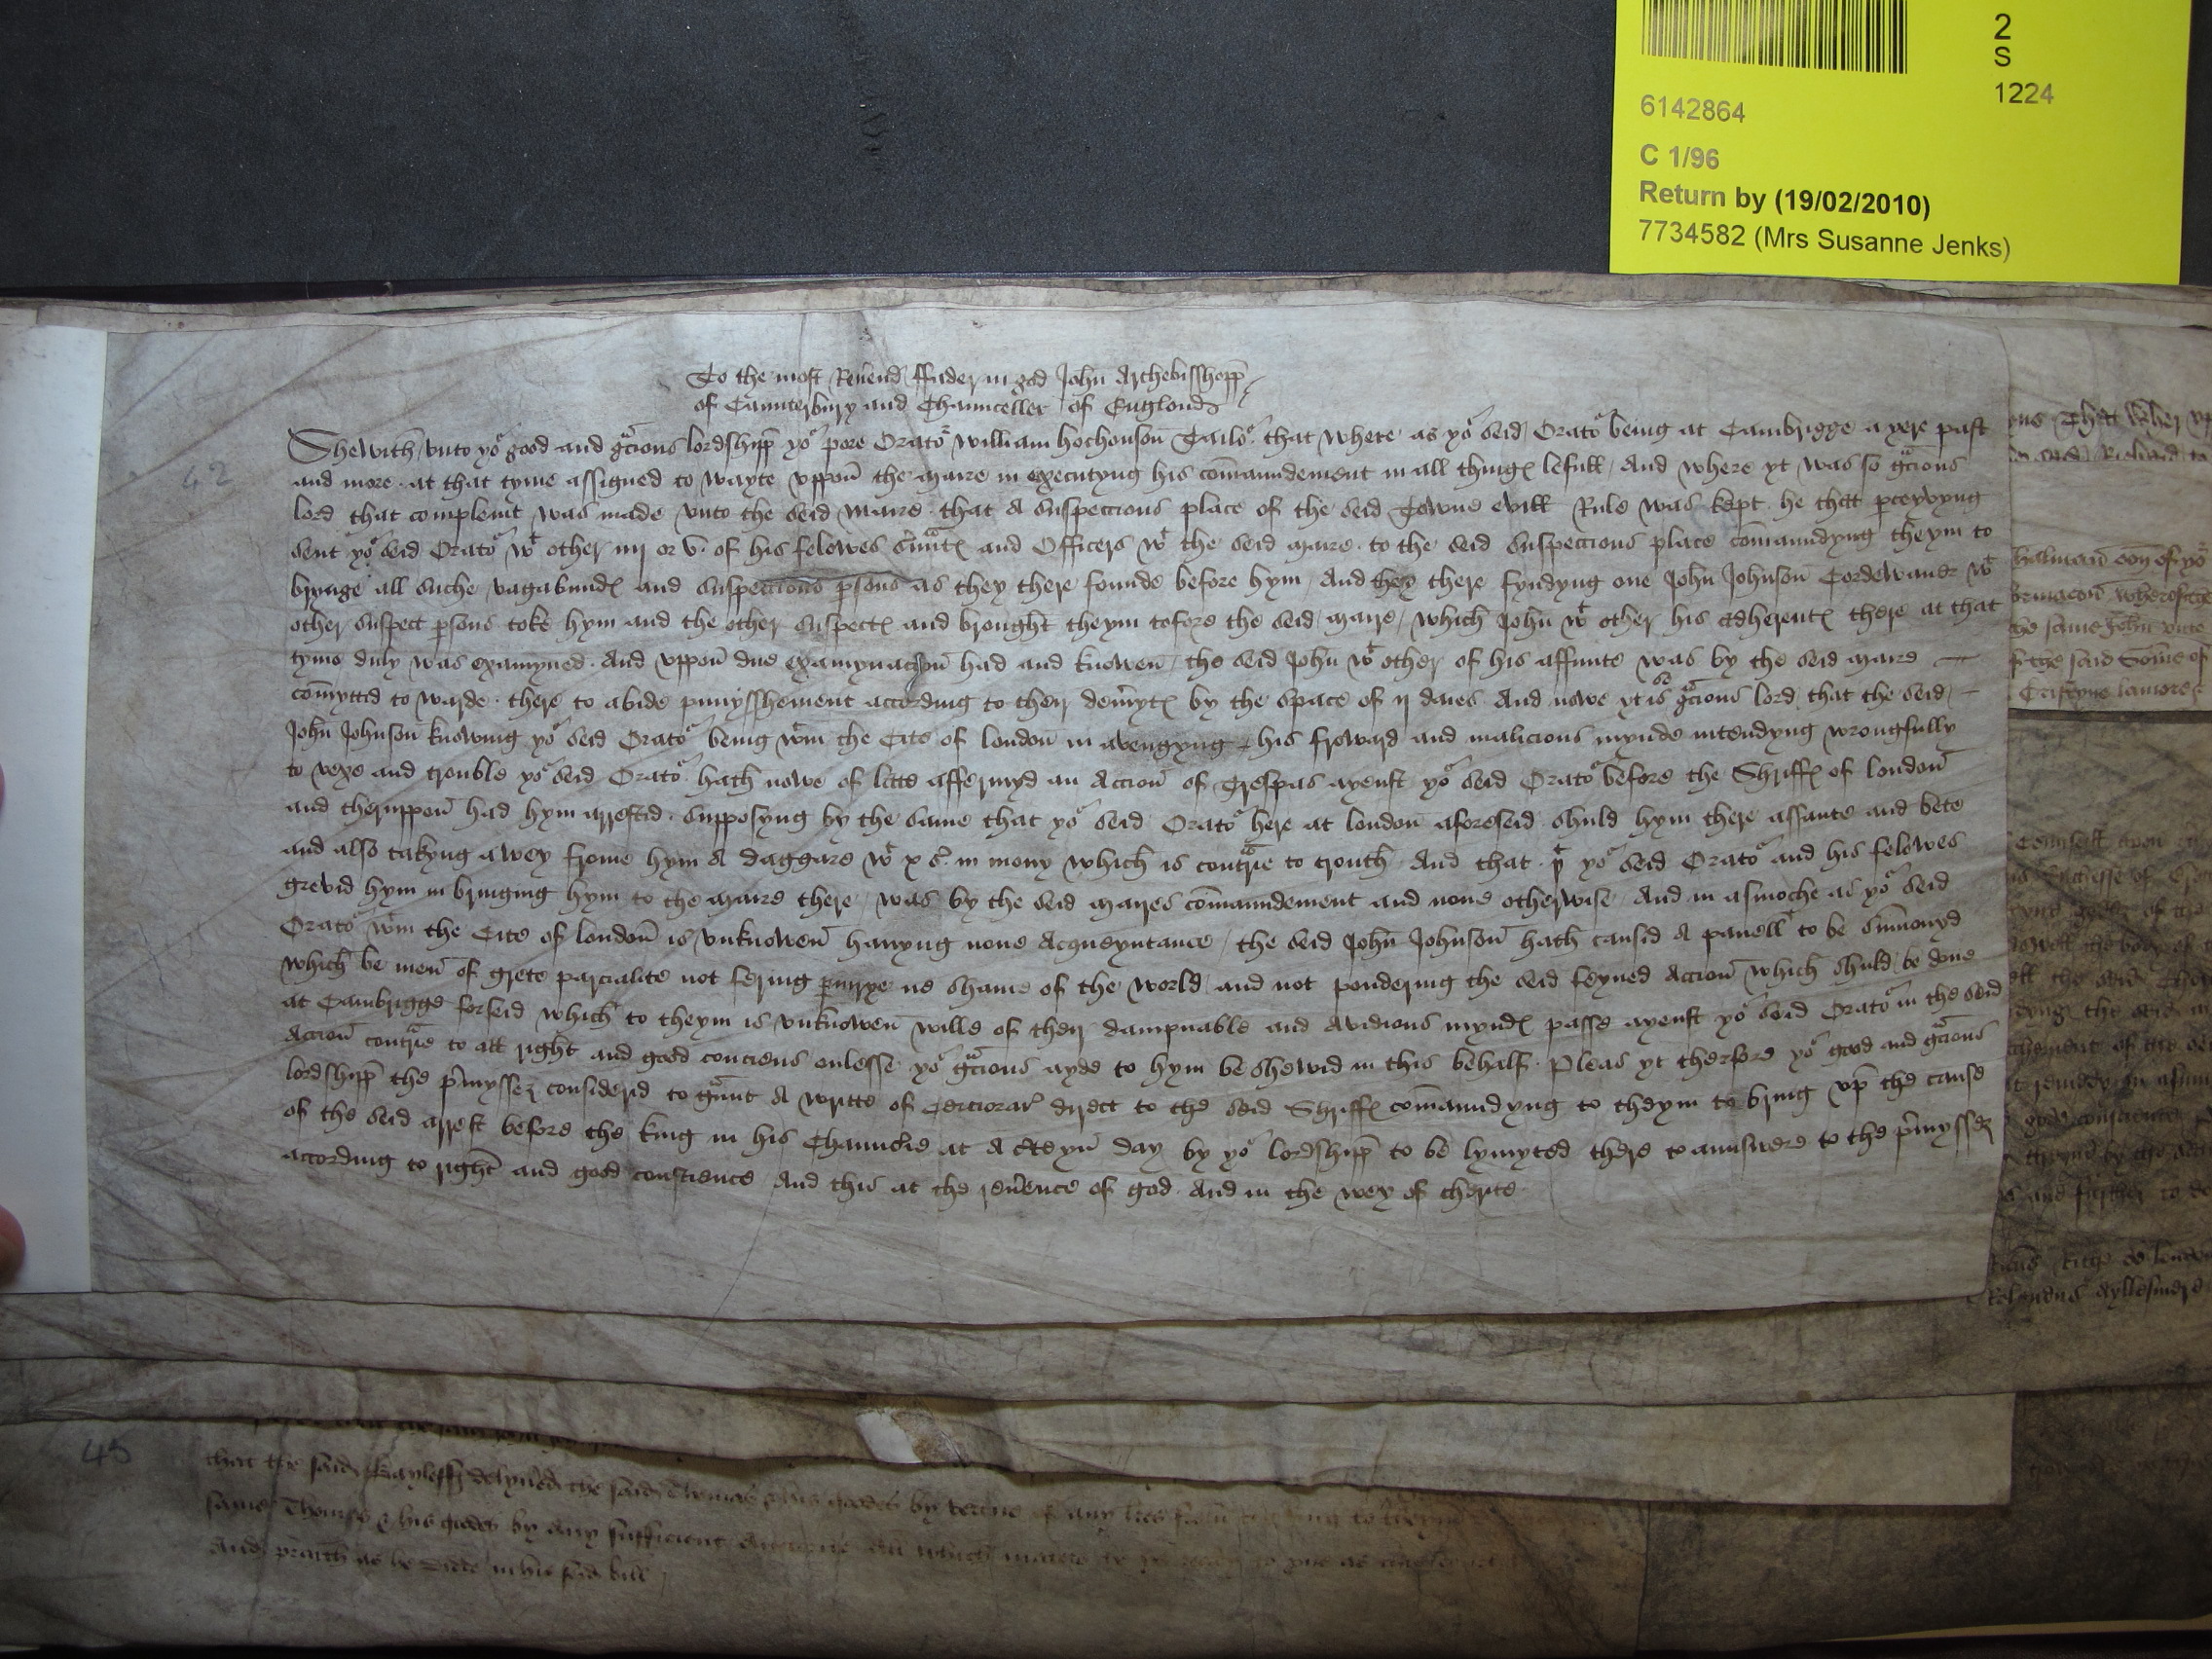 2
S
1224
6142864
C 1/96
Return by (19/02/2010)
7734582 (Mrs Susanne Jenks)
To the most Reu'end ffader in god John Archebisshopp
of Caunterbury and Chaunceller of Englond
42
Shewith vnto yor good and gracious lordshipp yor pore Orator william hochonson Tailor that where as yor seid Orator being at Cambrigge a yere past
and more at that tyme assigned to wayte vppon the maire in executyng his com̄aundement in all thinges lefull And where yt was so gracious
lord that compleint was made vnto the seid Maire that A suspeccious place of the seid Towne evill Rule was kept he that p'ceyvyng
sent yor seid Orator wt other iiij or v. of his felowes s'uauntes and Officers wt the seid maire to the seid suspeccious place com̄aundyng theym to
brynge all suche vagabundes and suspeccious p'sons as they there founde before hym And they there fyndyng one John Johnson Cordewaner wt
other suspect p'sons toke hym and the other suspectes and brought theym tofore the seid maire which John wt other his adherentes there at that
tyme duly was examyned And vppon due examynacion had and knowen the seid John wt other of his affunte was by the seid maire
com̄yttid to warde there to abide punysshement according to their dem'ytes by the space of ij daies And nowe yt is so gracious lord that the seid
John Johnson knowing yor seid Orator being wtin the Cite of london in avengyng his froward and malicious mynde intendyng wrongfully
to vexe and trouble yor seid Orator hath nowe of late affermyd an Accion of Trespas ayenst yor seid Orator before the Shriffes of london
and theruppon had hym arrestid supposyng by the same that yor seid Orator here at london aforeseid shuld hym there assaute and bete
and also takyng awey frome hym A daggare wt x s. in mony which is contrarie to trouth And that yt yor seid Orator and his felowes
grevid hym in bringing hym to the maire there was by the seid maires com̄aundement and none otherwise And in asmoche as yor seid
Orator wtin the Cite of london is vnknowen hauyng none Acqueyntance the seid John Johnson hath causid A panell to be som̄onyd
which be men of grete parcialite not fering p'iurye ne shame of the world and not pondering the seid feyned Accion which shuld be done
at Cambrigge forseid which to theym is vnknowen wille of their dampnable and Avidious myndes passe ayenst yor seid Orator in the seid
Accion contrarie to all right and good conciens onlesse yor gracious ayde to hym be shewid in this behalf Pleas yt therfore yor good and gracious
lordshipp the p'mysses considerid to graunt A writte of Cerciorar' direct to the seid Shriffes com̄aundyng to theym to bring vp the cause
of the seid arrest before the king in his Chauncerie at A c'teyn day by yor lordshipp to be lymyted there to aunswere to the p'mysses
according to right and good conscience And this at the reu'ence of god And in the wey of cherite
45
that the said
same Thomas & his godes by any sufficient
And praieth as he dide in his said bill